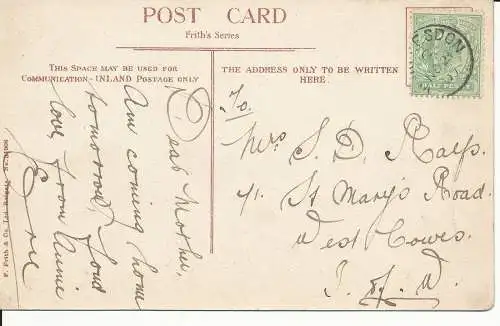 POST CARD
Frith's Series
THIS SPACE MAY BE USED FOR
COMMUNICATION - INLAND POSTAGE ONLY
Dear Mother,
Am coming home
tomorrow, fond
love from Annie
Eric
THE ADDRESS ONLY TO BE WRITTEN
HERE.
To.
Mrs S. D. Ralfs.
41. St Mary's Road.
West Cowes.
I. of. W.
ESDON
HALF PENNY
F. Frith & Co. Ltd. Reigate.